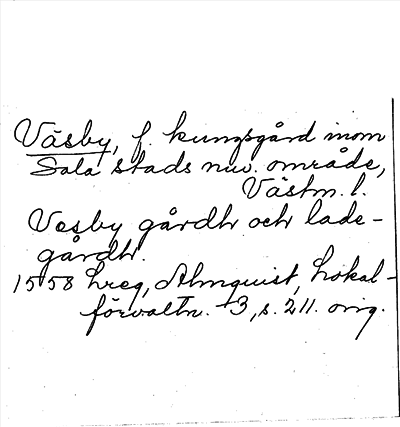 Väsby, f. kungsgård inom
Sala stads nuv. område,
Västm. l.
Vesby gårdh och lade-
gårdh.
1558 hreg, Almquist, Lokal-
förvaltn. 3, s. 211. orig.